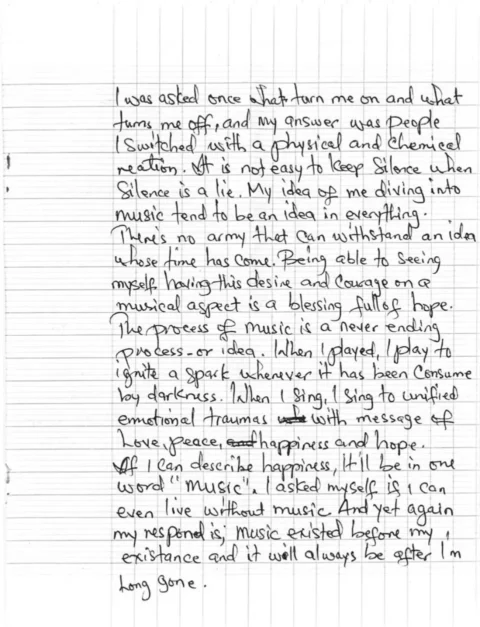 I was asked once what turn me on and what
turns me off, and my answer was people
I switched with a physical and chemical
reation. It is not easy to keep silence when
silence is a lie. My idea of me diving into
music tend to be an idea in everything.
There's no army that can withstand an idea
whose time has come. Being able to seeing
myself having this desire and courage on a
musical aspect is a blessing full of hope.
The process of music is a never ending
process-or idea. When I played, I play to
ignite a spark wherever it has been consume
by darkness. When I sing, I sing to unified
emotional traumas with message of
love, peace, happiness and hope.
If I can describe happiness, It'll be in one
word "music". I asked myself is I can
even live without music. And yet again
my respond is; music existed before my
existance and it will always be after I'm
long gone.